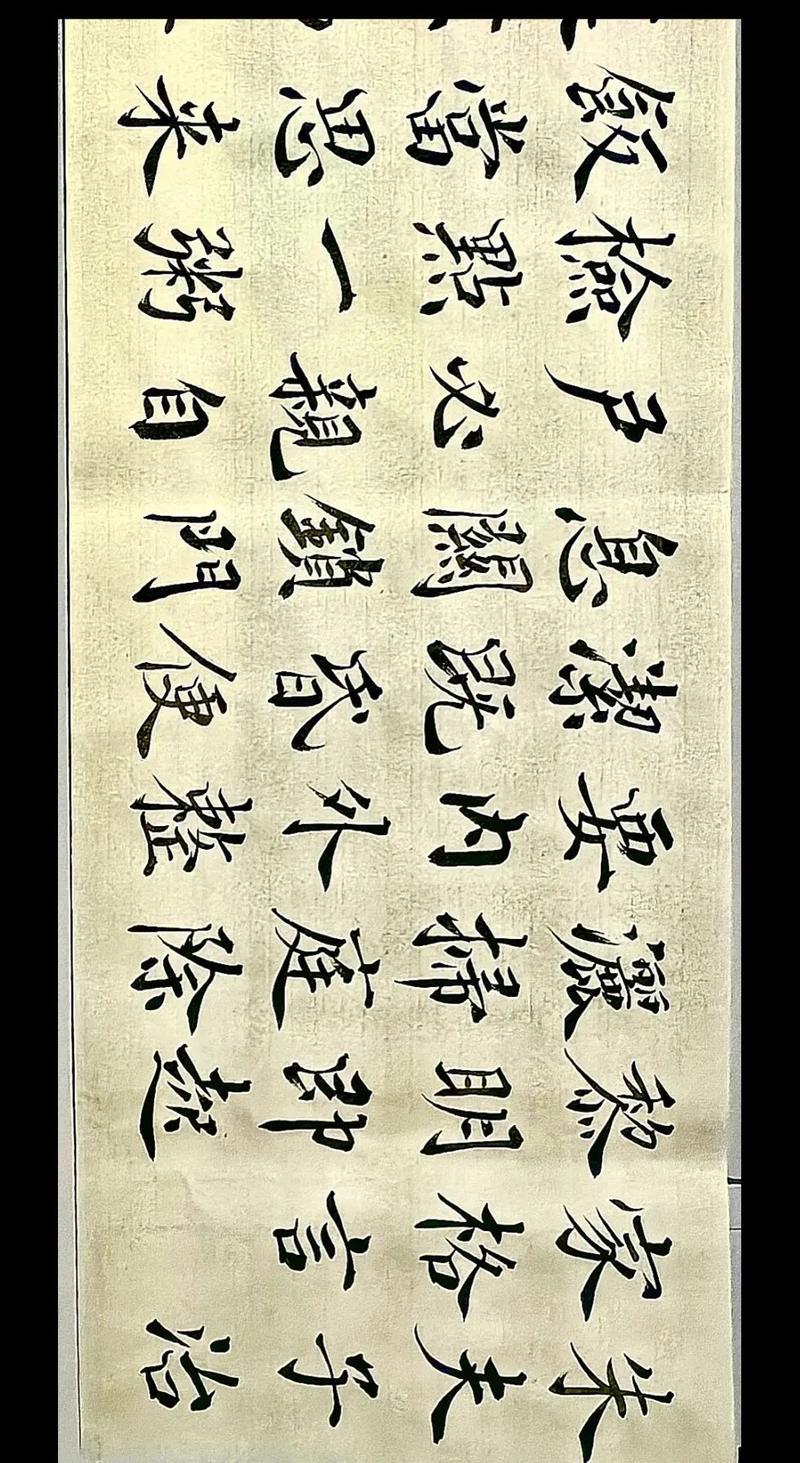 朱夫子治
家格言
黎明即起
灑掃庭除
要内外整
潔既昏便
息關鎖門
户必親自
檢點一粥
飯當思来